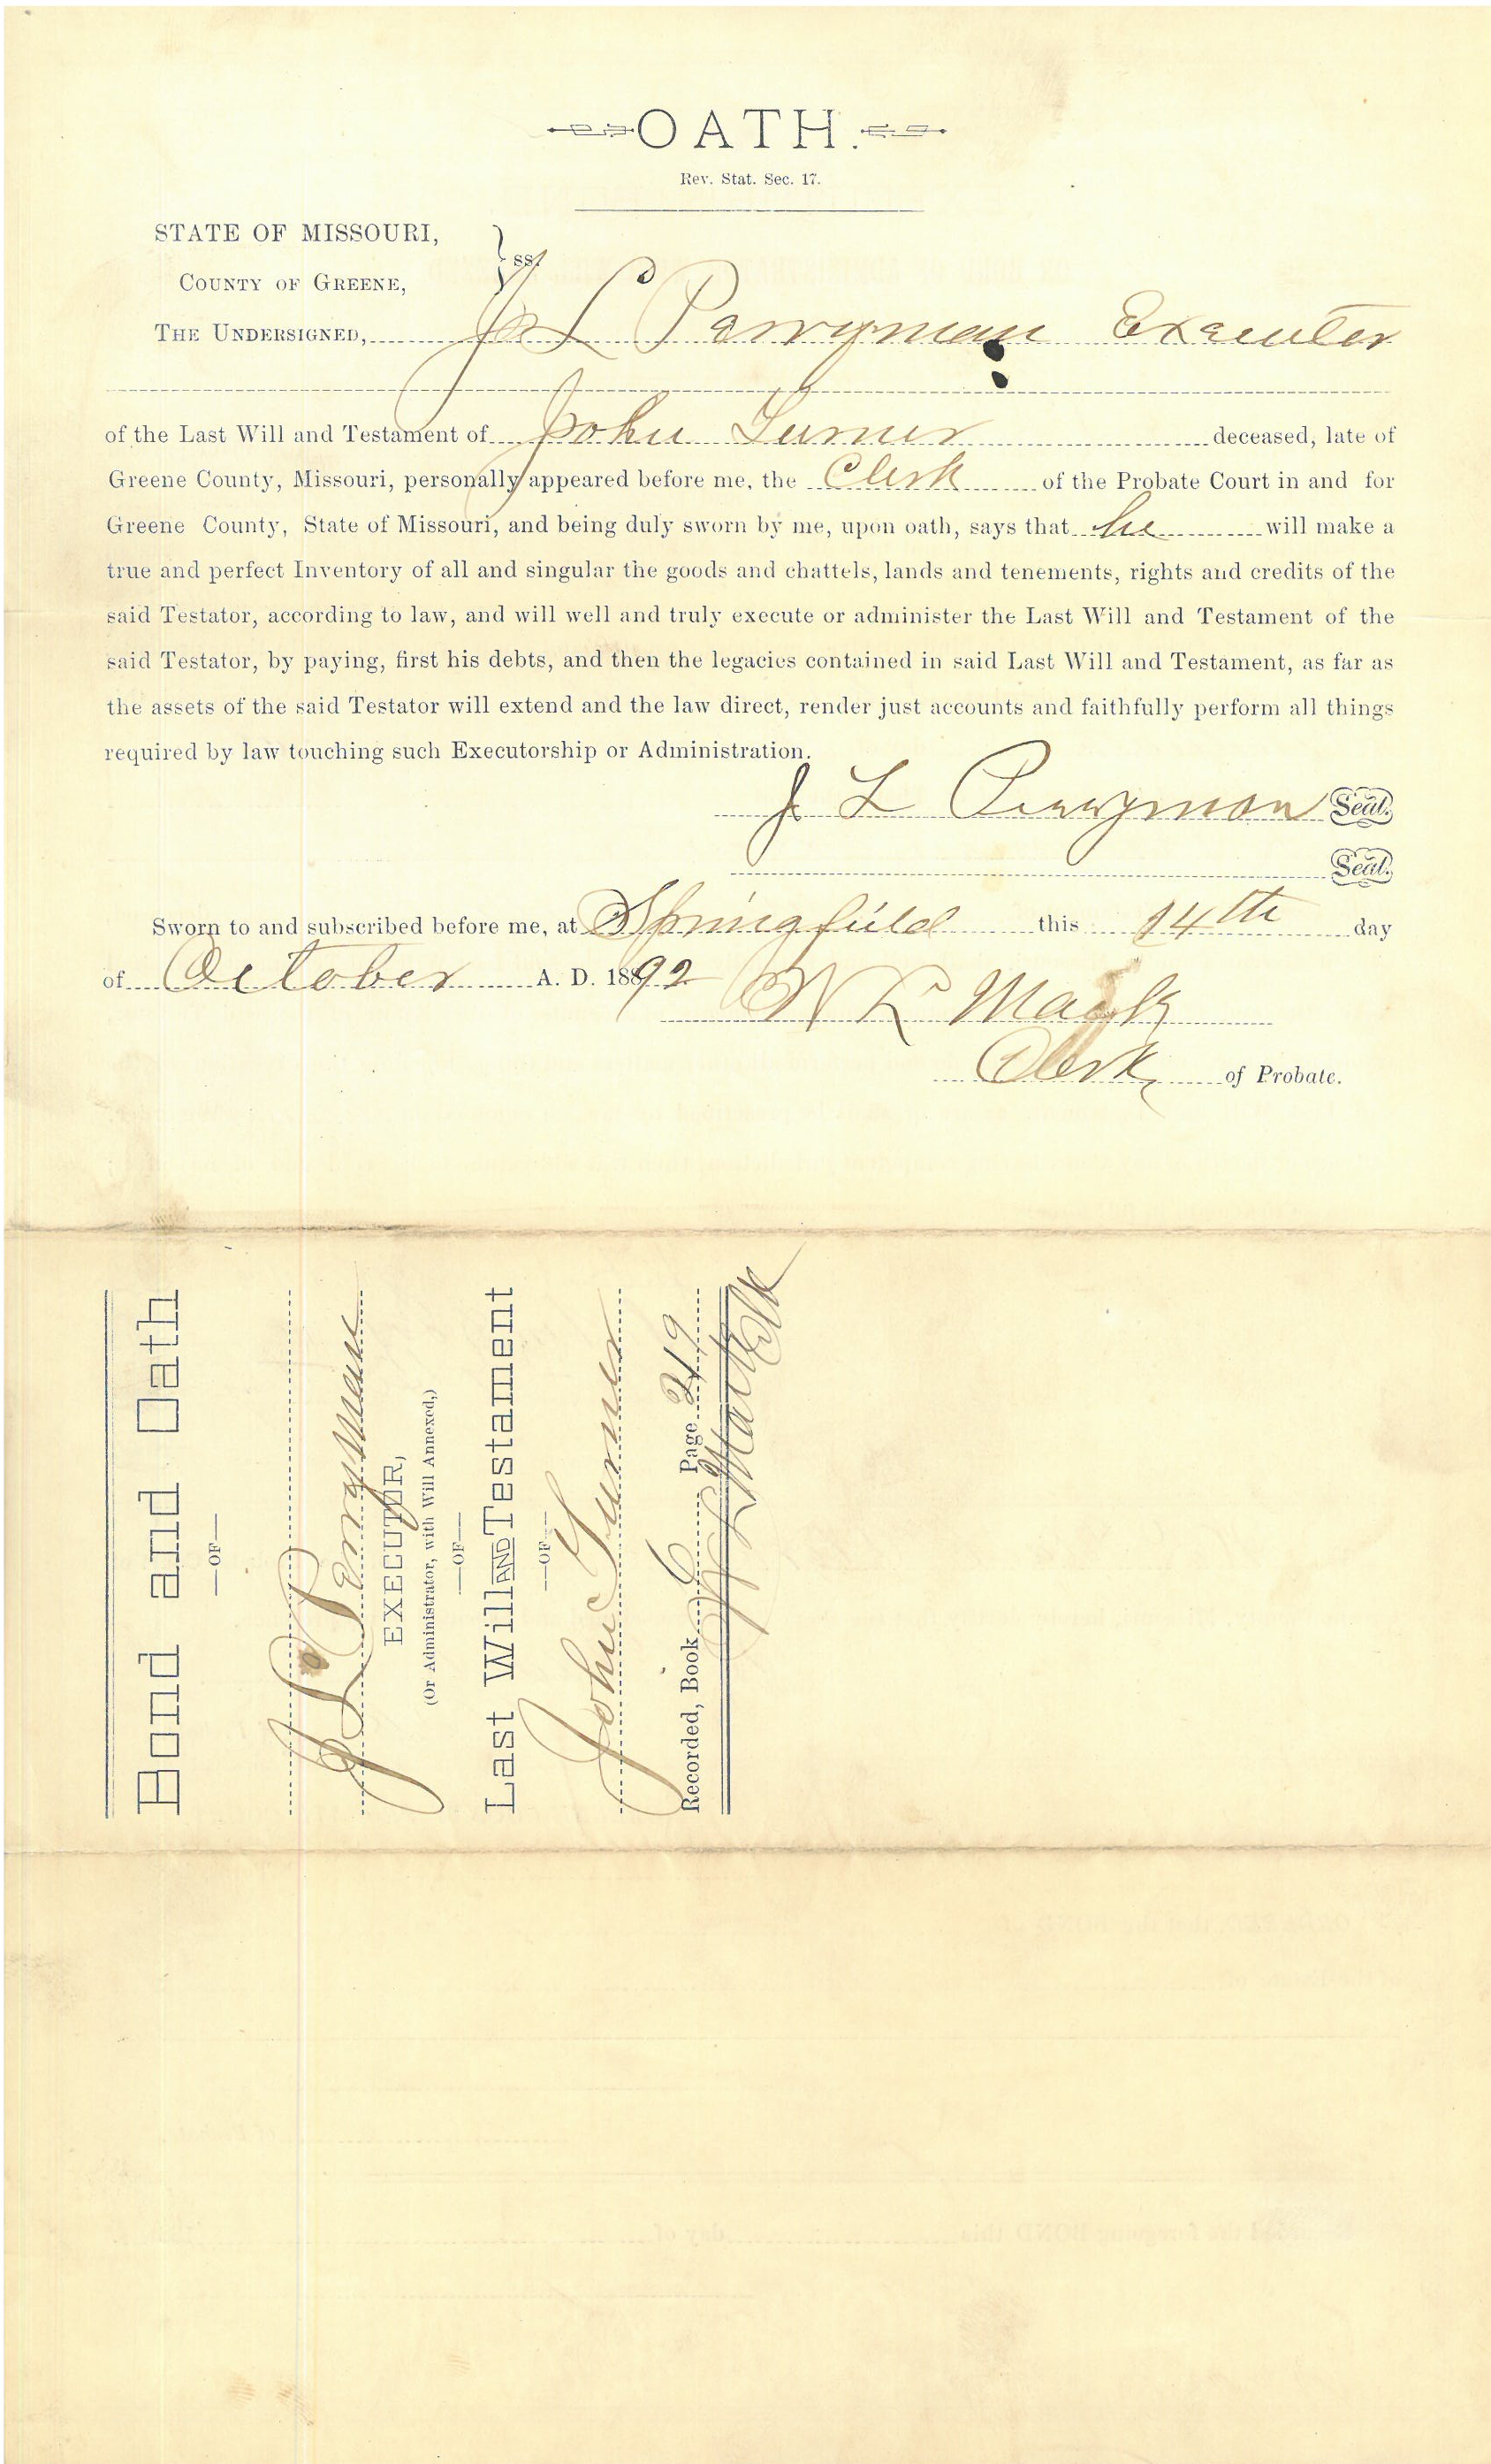 OATH.
Rev. Stat. Sec. 17.
STATE OF MISSOURI,
COUNTY OF GREENE,
ss.
THE UNDERSIGNED, J L Perryman Executor
of the Last Will and Testament of John Turner deceased, late of
Greene County, Missouri, personally appeared before me, the Clerk of the Probate Court in and for
Greene County, State of Missouri, and being duly sworn by me, upon oath, says that he will make a
true and perfect Inventory of all and singular the goods and chattels, lands and tenements, rights and credits of the
said Testator, according to law, and will well and truly execute or administer the Last Will and Testament of the
said Testator, by paying, first his debts, and then the legacies contained in said Last Will and Testament, as far as
the assets of the said Testator will extend and the law direct, render just accounts and faithfully perform all things
required by law touching such Executorship or Administration.
J L Perryman Seal.
Seal.
Sworn to and subscribed before me, at Springfield this 14th day
of October A. D. 1892
W L Mack
Clerk of Probate.
Bond and Oath
—OF—
J L Perryman
EXECUTOR,
(Or Administrator, with Will Annexed,)
—OF—
Last Will AND Testament
—OF—
John Turner
Recorded, Book 6 Page 219
W L Mack Clk